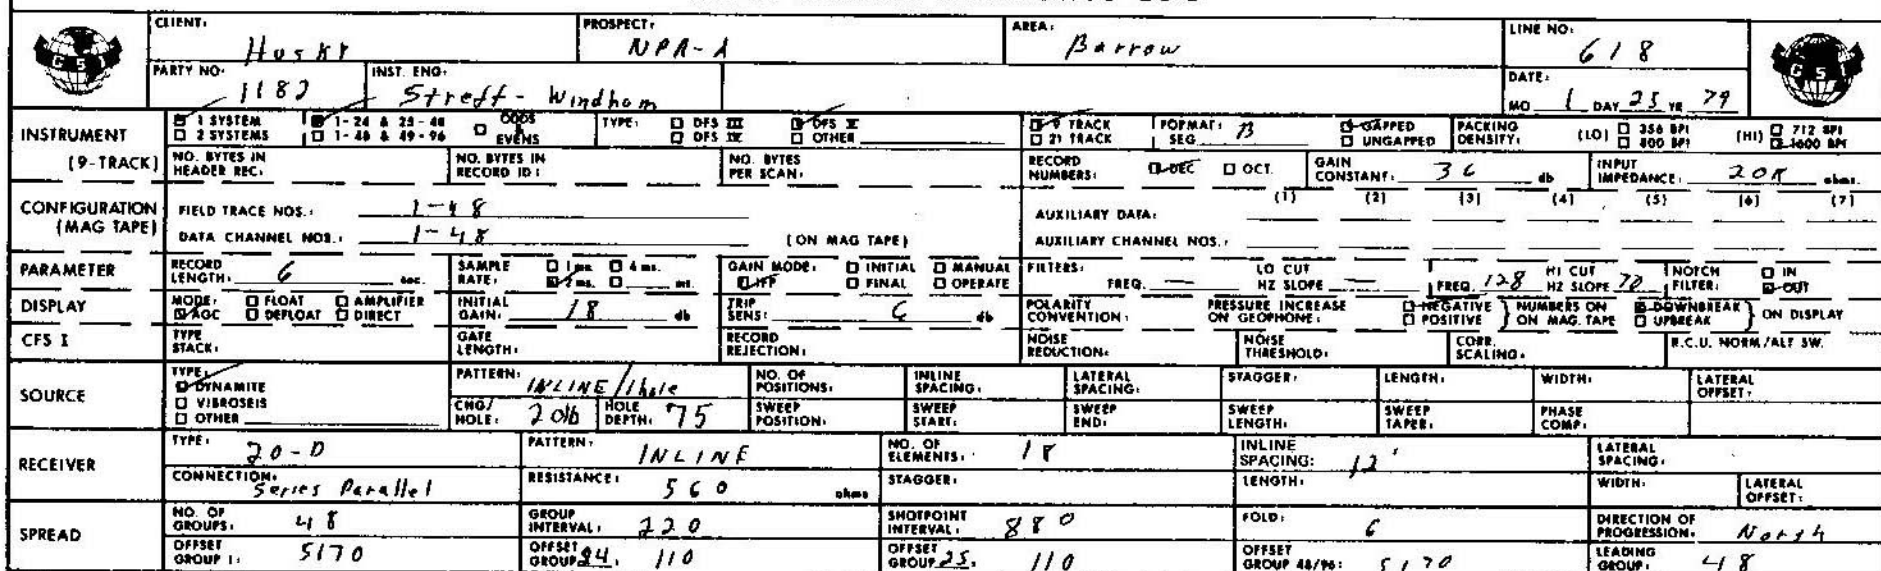 CLIENT: Husky PROSPECT: NPR-A AREA: Barrow LINE NO: 618
GSI GSI
PARTY NO: 1182 INST. ENG: Streff - Windham DATE: MO 1 DAY 25 YR 79
INSTRUMENT 1 SYSTEM 1-24 & 25-48 ODDS TYPE: DFS III DFS V 9 TRACK FORMAT: B GAPPED PACKING (LO) 356 BPI (HI) 712 BPI
2 SYSTEMS 1-48 & 49-96 EVENS DFS IV OTHER 21 TRACK SEG UNGAPPED DENSITY: 800 BPI 1600 BPI
(9-TRACK) NO. BYTES IN HEADER REC: NO. BYTES IN RECORD ID: NO. BYTES PER SCAN: RECORD NUMBERS: DEC OCT. GAIN CONSTANT: 36 db INPUT IMPEDANCE: 20K ohms.
CONFIGURATION FIELD TRACE NOS.: 1-48 AUXILIARY DATA: (1) (2) (3) (4) (5) (6) (7)
(MAG TAPE) DATA CHANNEL NOS.: 1-48 (ON MAG TAPE) AUXILIARY CHANNEL NOS.:
PARAMETER RECORD LENGTH: 6 sec. SAMPLE RATE: 1 ms. 4 ms. 2 ms. ms. GAIN MODE: INITIAL MANUAL IFP FINAL OPERATE FILTERS: FREQ. — LO CUT HZ SLOPE — FREQ. 128 HI CUT HZ SLOPE 72 NOTCH FILTER: IN OUT
DISPLAY MODE: FLOAT AMPLIFIER AGC DEFLOAT DIRECT INITIAL GAIN: 18 db TRIP SENS: 6 db POLARITY CONVENTION: PRESSURE INCREASE ON GEOPHONE: NEGATIVE POSITIVE } NUMBERS ON MAG. TAPE DOWNBREAK UPBREAK } ON DISPLAY
CFS I TYPE STACK: GATE LENGTH: RECORD REJECTION: NOISE REDUCTION: NOISE THRESHOLD: CORR. SCALING: R.C.U. NORM/ALT SW.
SOURCE TYPE: PATTERN: INLINE/1hole NO. OF POSITIONS: INLINE SPACING: LATERAL SPACING: STAGGER: LENGTH: WIDTH: LATERAL OFFSET:
DYNAMITE
VIBROSEIS
OTHER
CHG/HOLE: 20lb HOLE DEPTH: 75 SWEEP POSITION: SWEEP START: SWEEP END: SWEEP LENGTH: SWEEP TAPER: PHASE COMP:
RECEIVER TYPE: 20-D PATTERN: INLINE NO. OF ELEMENTS: 18 INLINE SPACING: 12' LATERAL SPACING:
CONNECTION: Series Parallel RESISTANCE: 560 ohms STAGGER: LENGTH: WIDTH: LATERAL OFFSET:
SPREAD NO. OF GROUPS: 48 GROUP INTERVAL: 220 SHOTPOINT INTERVAL: 880 FOLD: 6 DIRECTION OF PROGRESSION: North
OFFSET GROUP 1: 5170 OFFSET GROUP 24: 110 OFFSET GROUP 25: 110 OFFSET GROUP 48/96: 5170 LEADING GROUP: 48